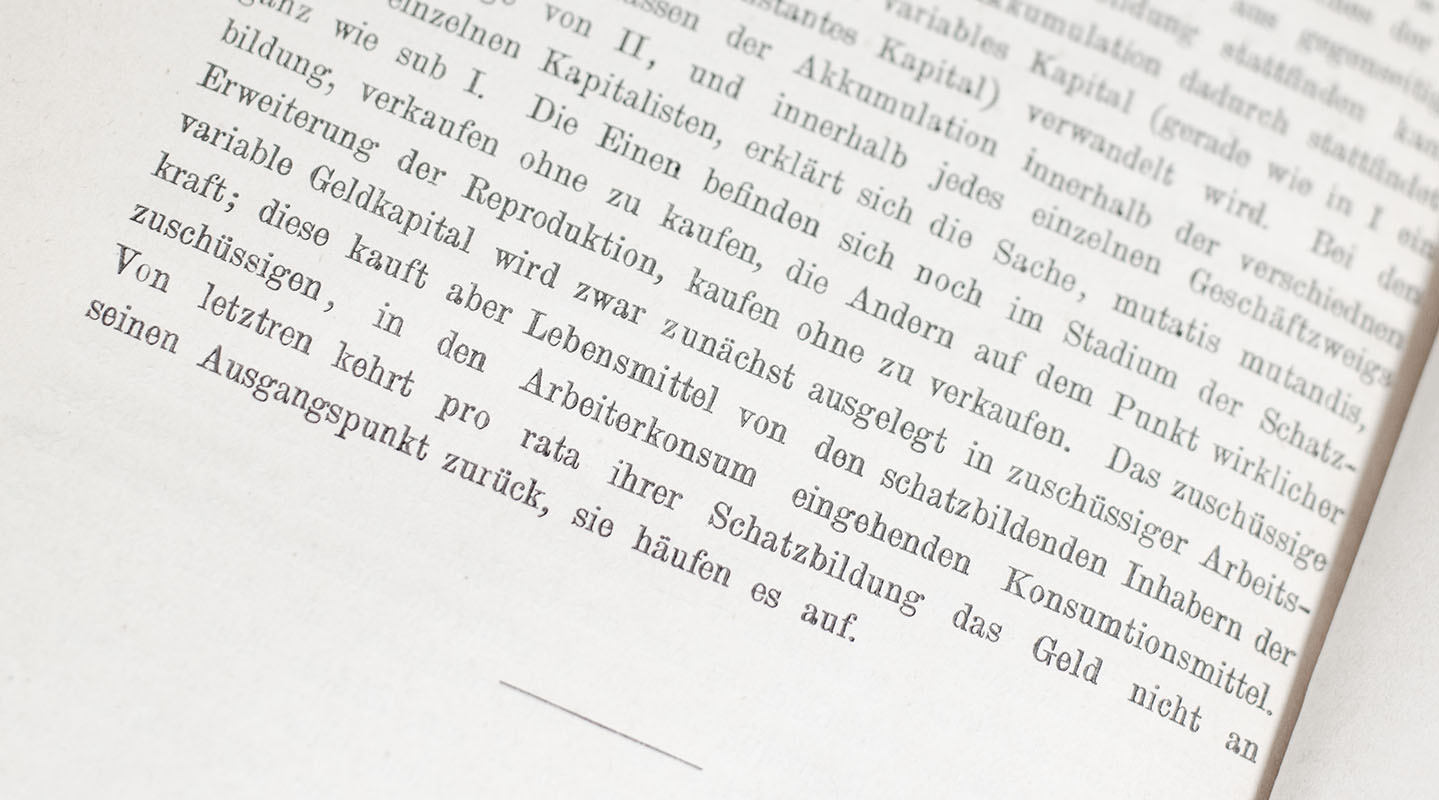 aus gegenseitig
stattfinden kan
Akkumulation dadurch stattfindet
variables Kapital (gerade wie in I ein
Kapital) verwandelt wird. Bei den
der Akkumulation innerhalb der verschiednen
von II, und innerhalb jedes einzelnen Geschäftzweigs
einzelnen Kapitalisten, erklärt sich die Sache, mutatis mutandis,
ganz wie sub I. Die Einen befinden sich noch im Stadium der Schatz-
bildung, verkaufen ohne zu kaufen, die Andern auf dem Punkt wirklicher
Erweiterung der Reproduktion, kaufen ohne zu verkaufen. Das zuschüssige
variable Geldkapital wird zwar zunächst ausgelegt in zuschüssiger Arbeits-
kraft; diese kauft aber Lebensmittel von den schatzbildenden Inhabern der
zuschüssigen, in den Arbeiterkonsum eingehenden Konsumtionsmittel.
Von letztren kehrt pro rata ihrer Schatzbildung das Geld nicht an
seinen Ausgangspunkt zurück, sie häufen es auf.